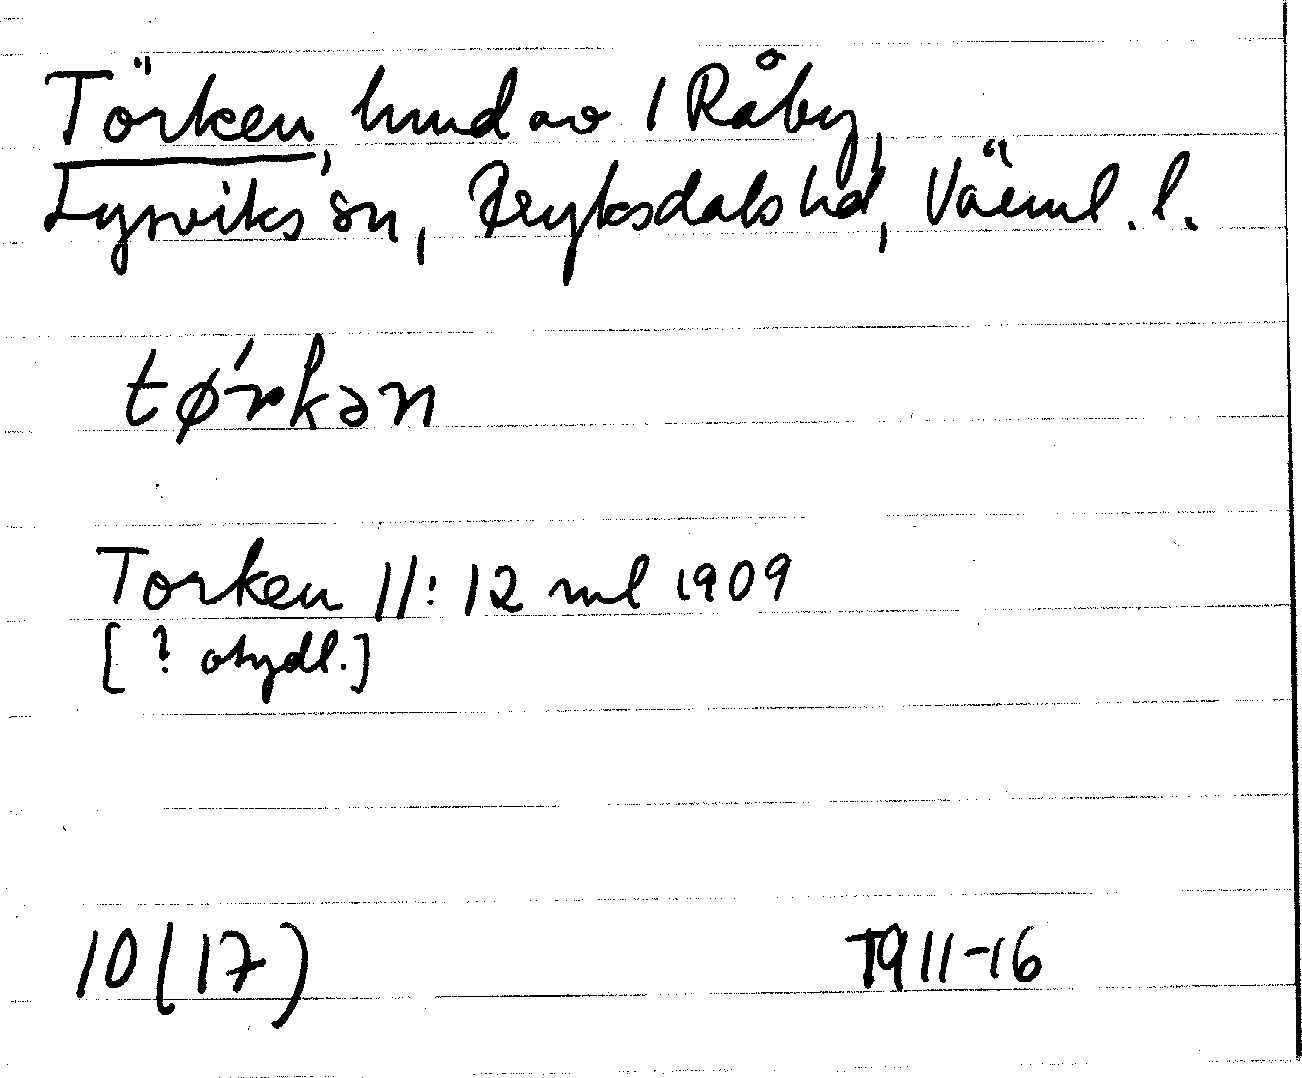 Törken, hmd av 1 Råby,
Lysviks sn, Fryksdals hd, Värml. l.
tø´rkən
Torken //: 12 ml 1909
[? otydl.]
10(17)
1911-16